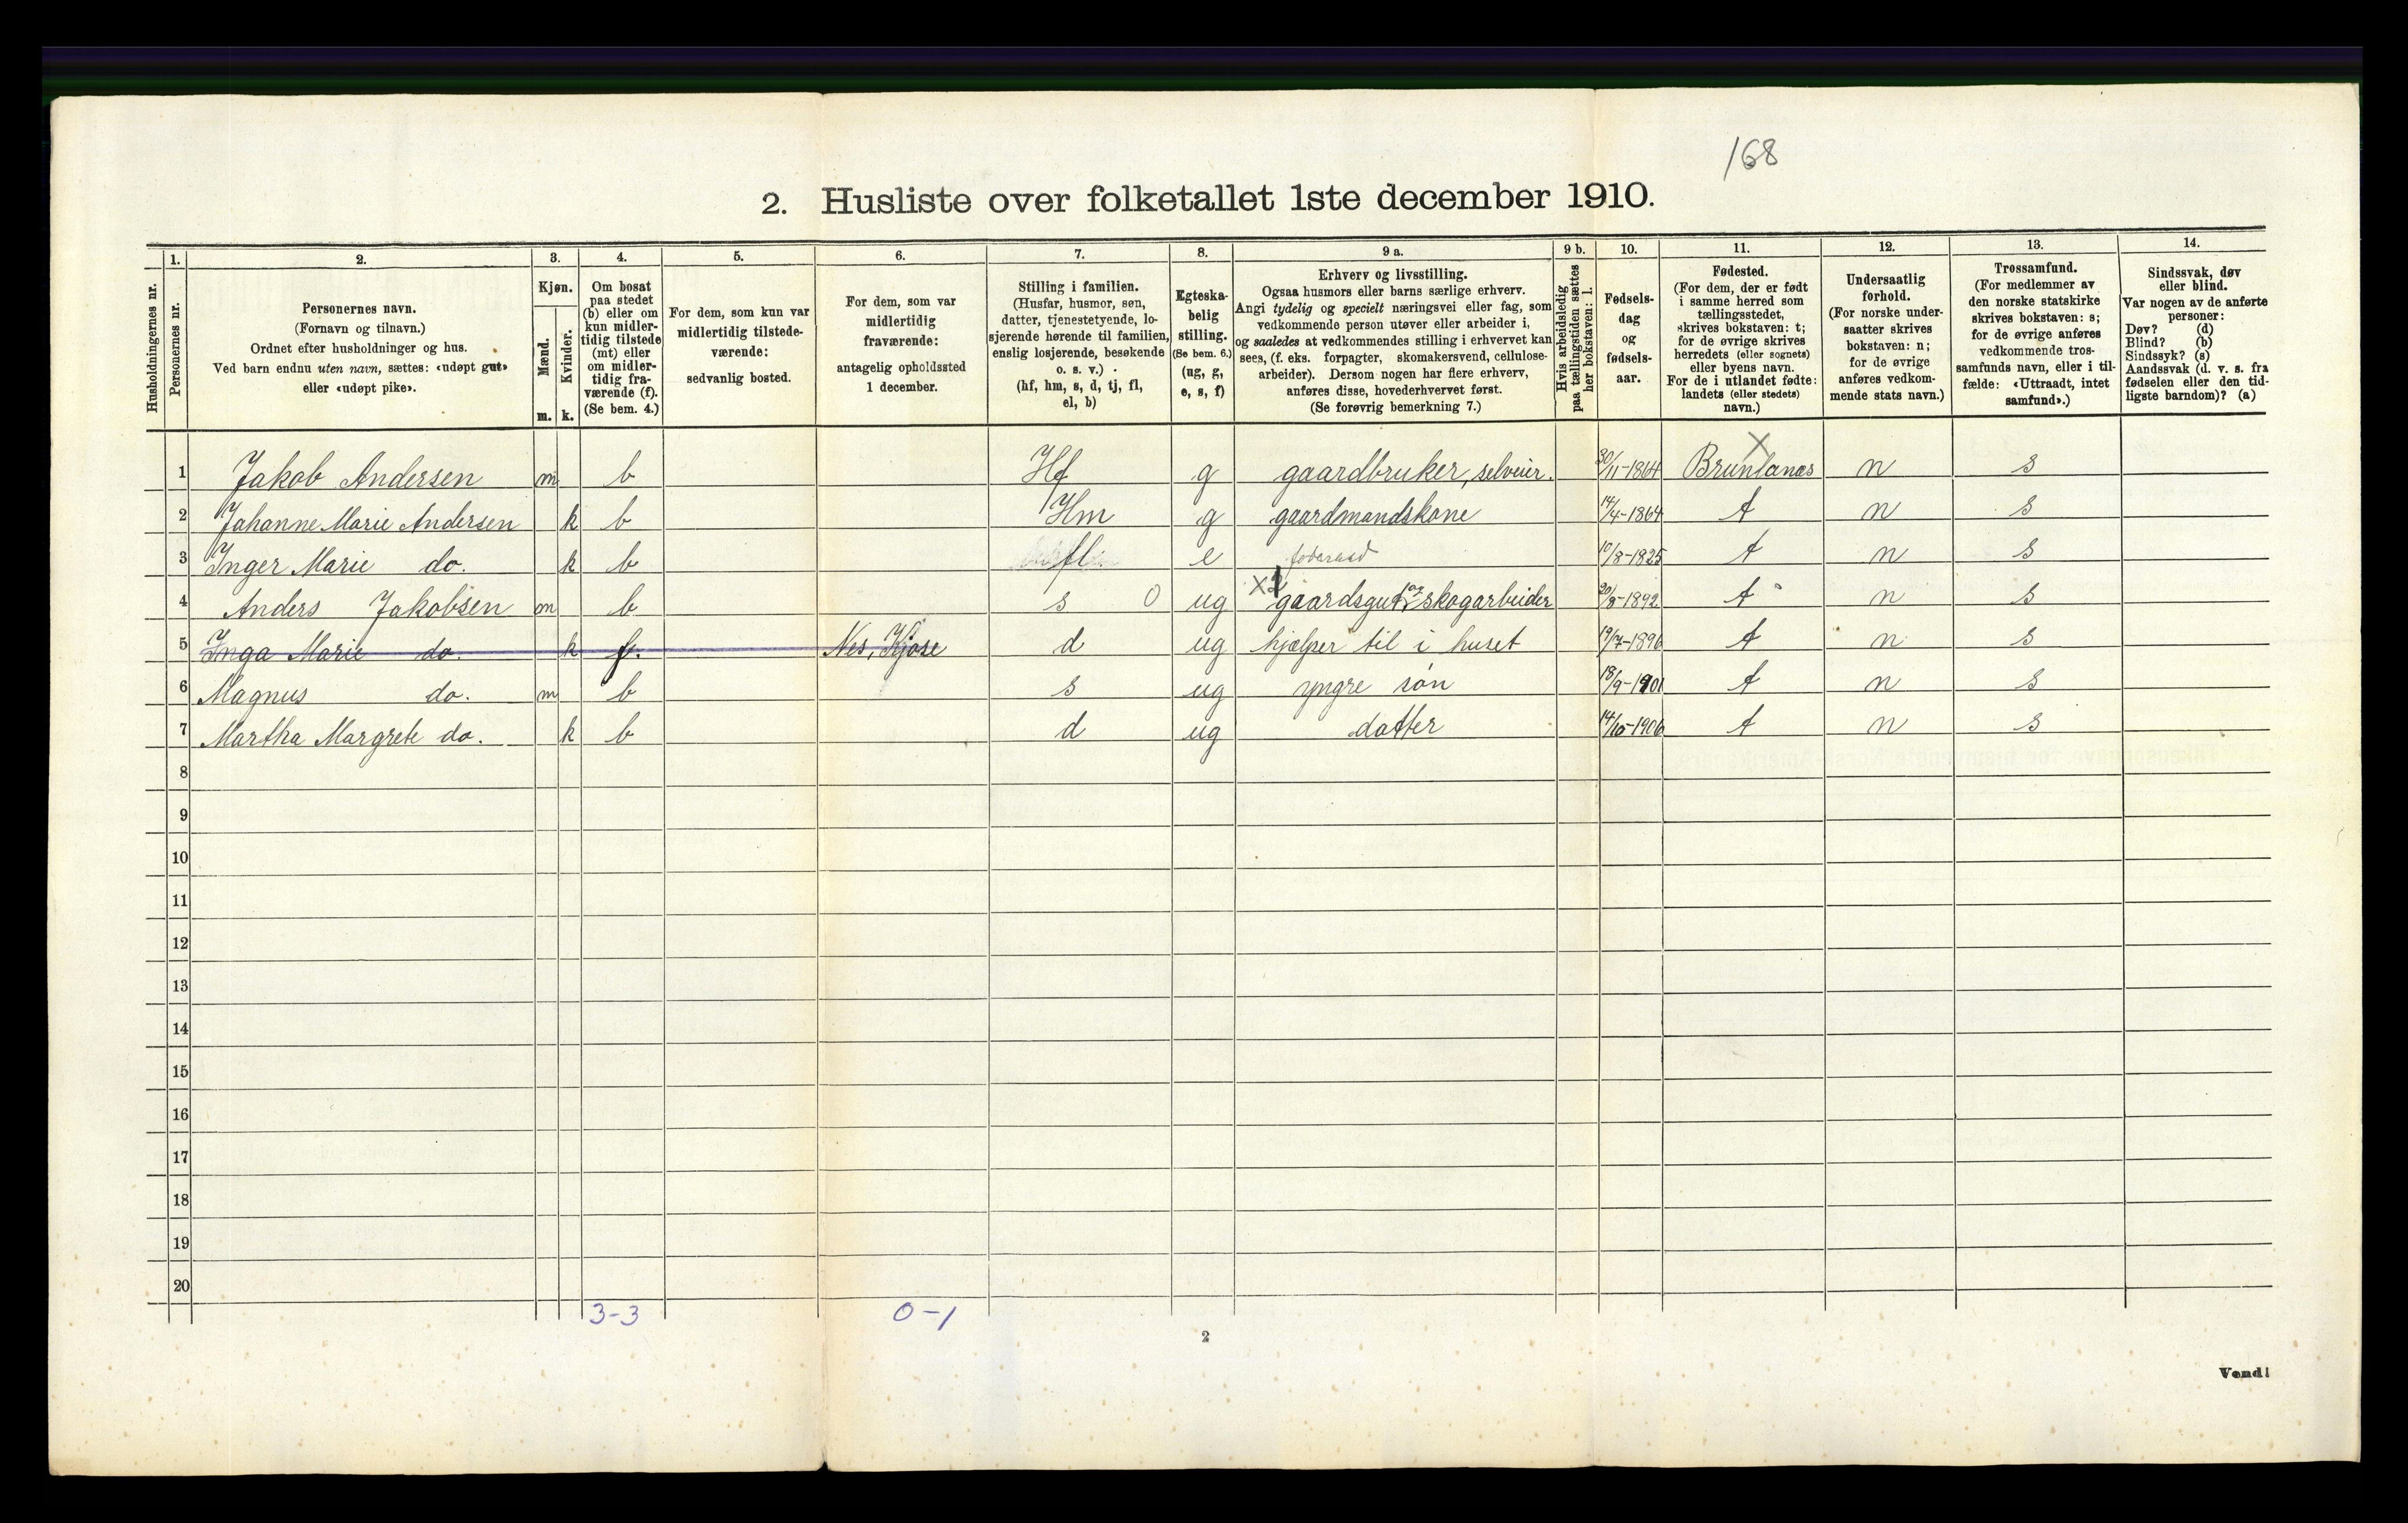 168
2. Husliste over folketallet 1ste december 1910.
Husholdningernes nr.
1. Personernes nr.
2. Personernes navn. (Fornavn og tilnavn.) Ordnet efter husholdninger og hus. Ved barn endnu uten navn, sættes: «udøpt gut» eller «udøpt pike».
3. Kjøn. Mænd. m. Kvinder. k.
4. Om bosat paa stedet (b) eller om kun midlertidig tilstede (mt) eller om midlertidig fraværende (f). (Se bem. 4.)
5. For dem, som kun var midlertidig tilstedeværende: sedvanlig bosted.
6. For dem, som var midlertidig fraværende: antagelig opholdssted 1 december.
7. Stilling i familien. (Husfar, husmor, søn, datter, tjenestetyende, losjerende hørende til familien, enslig losjerende, besøkende o. s. v.) (hf, hm, s, d, tj, fl, el, b)
8. Egteskabelig stilling. (Se bem. 6.) (ug, g, e, s, f)
9 a. Erhverv og livsstilling. Ogsaa husmors eller barns særlige erhverv. Angi tydelig og specielt næringsvei eller fag, som vedkommende person utøver eller arbeider i, og saaledes at vedkommendes stilling i erhvervet kan sees, (f. eks. forpagter, skomakersvend, cellulosearbeider). Dersom nogen har flere erhverv, anføres disse, hovederhvervet først. (Se forøvrig bemerkning 7.)
9 b. Hvis arbeidsledig paa tællingstiden sættes her bokstaven: l.
10. Fødselsdag og fødselsaar.
11. Fødested. (For dem, der er født i samme herred som tællingsstedet, skrives bokstaven: t; for de øvrige skrives herredets (eller sognets) eller byens navn. For de i utlandet fødte: landets (eller stedets) navn.)
12. Undersaatlig forhold. (For norske undersaatter skrives bokstaven: n; for de øvrige anføres vedkommende stats navn.)
13. Trossamfund. (For medlemmer av den norske statskirke skrives bokstaven: s; for de øvrige anføres vedkommende trossamfunds navn, eller i tilfælde: «Uttraadt, intet samfund».)
14. Sindssvak, døv eller blind. Var nogen av de anførte personer: Døv? (d) Blind? (b) Sindssyk? (s) Aandssvak (d. v. s. fra fødselen eller den tidligste barndom)? (a)
1 Jakob Andersen m b Hf g gaardbruker, selveier. 30/11-1864 Brunlanæs X n s
2 Johanne Marie Andersen k b Hm g gaardmandskone 14/4-1864 t n s
3 Inger Marie do. k b fl. e foderaad 10/8-1825 t n s
4 Anders Jakobsen m b s 0 ug X2 gaardsgut og skogarbeider 20/8-1892 t n s
5 Inga Marie do. k f. Nes, Kjose d ug hjælper til i huset 19/7-1896 t n s
6 Magnus do. m b s ug yngre søn 18/9-1901 t n s
7 Martha Margrete do. k b d ug datter 14/10-1906 t n s
8
9
10
11
12
13
14
15
16
17
18
19
20
3-3 0-1
2
Vend!